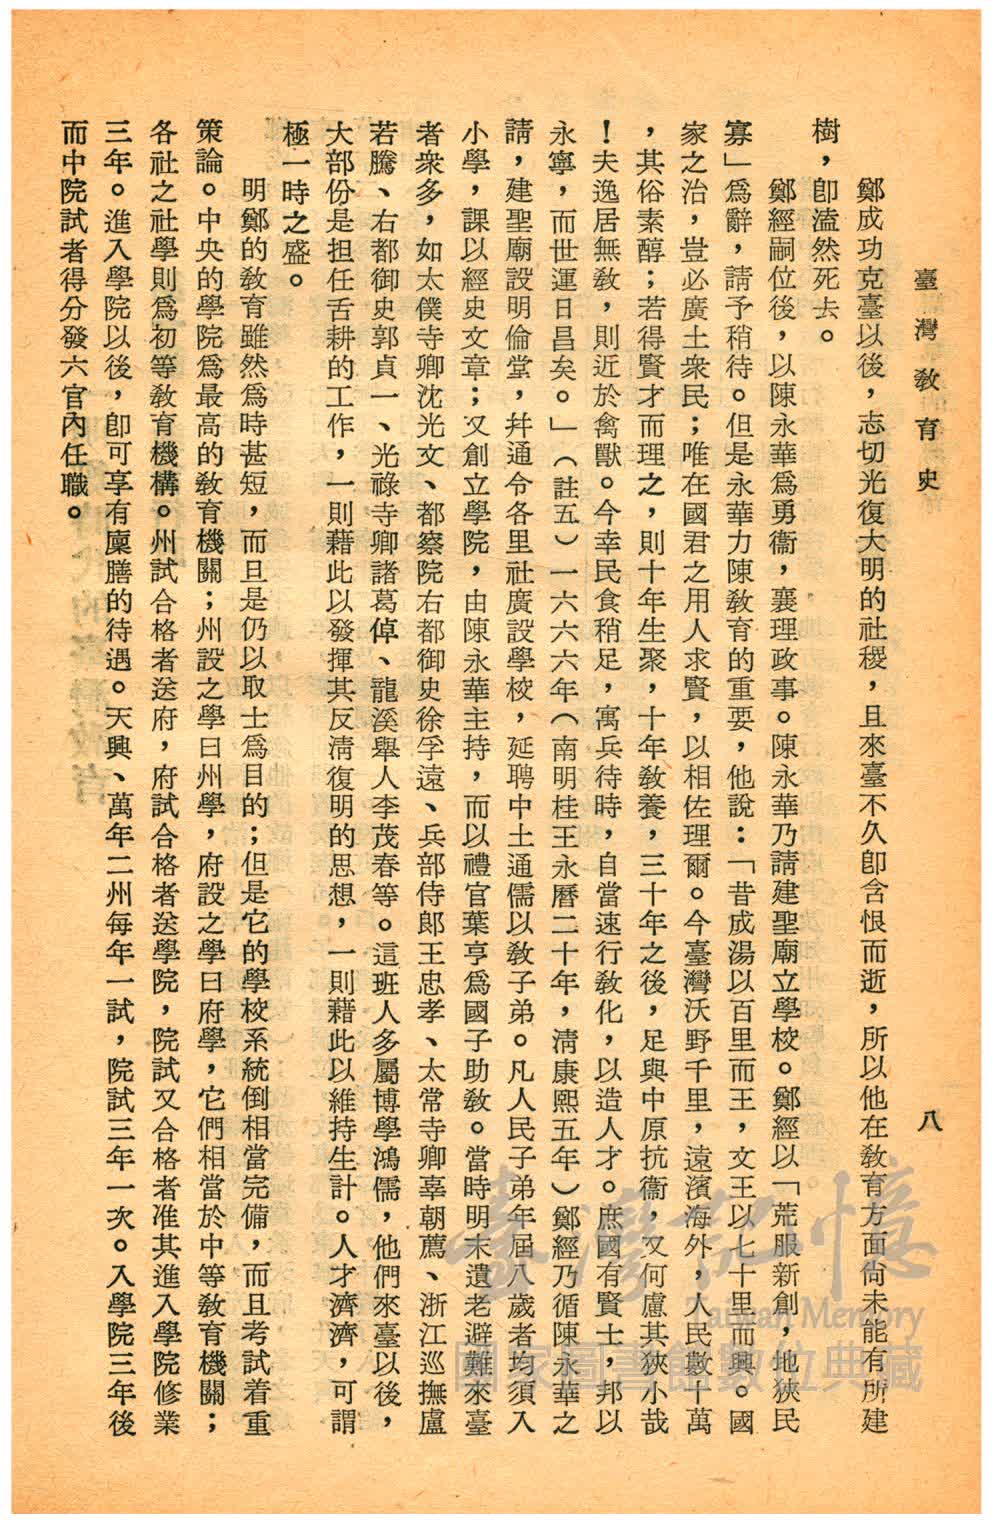 臺灣教育史
八
鄭成功克臺以後，志切光復大明的社稷，且來臺不久卽含恨而逝，所以他在教育方面尙未能有所建
樹，卽溘然死去。
鄭經嗣位後，以陳永華爲勇衞，襄理政事。陳永華乃請建聖廟立學校。鄭經以「荒服新創，地狹民
寡」爲辭，請予稍待。但是永華力陳教育的重要，他說：「昔成湯以百里而王，文王以七十里而興。國
家之治，豈必廣土衆民；唯在國君之用人求賢，以相佐理爾。今臺灣沃野千里，遠濱海外，人民數十萬
，其俗素醇；若得賢才而理之，則十年生聚，十年教養，三十年之後，足與中原抗衞，又何慮其狹小哉
！夫逸居無教，則近於禽獸。今幸民食稍足，寓兵待時，自當速行教化，以造人才。庶國有賢士，邦以
永寧，而世運日昌矣。」（註五）一六六六年（南明桂王永曆二十年，淸康熙五年）鄭經乃循陳永華之
請，建聖廟設明倫堂，幷通令各里社廣設學校，延聘中土通儒以教子弟。凡人民子弟年屆八歲者均須入
小學，課以經史文章；又創立學院，由陳永華主持，而以禮官葉亨爲國子助教。當時明末遺老避難來臺
者衆多，如太僕寺卿沈光文、都察院右都御史徐孚遠、兵部侍郞王忠孝、太常寺卿辜朝薦、浙江巡撫盧
若騰、右都御史郭貞一、光祿寺卿諸葛倬、龍溪舉人李茂春等。這班人多屬博學鴻儒，他們來臺以後，
大部份是担任舌耕的工作，一則藉此以發揮其反淸復明的思想，一則藉此以維持生計。人才濟濟，可謂
極一時之盛。
明鄭的教育雖然爲時甚短，而且是仍以取士爲目的；但是它的學校系統倒相當完備，而且考試着重
策論。中央的學院爲最高的教育機關；州設之學曰州學，府設之學曰府學，它們相當於中等教育機關；
各社之社學則爲初等教育機構。州試合格者送府，府試合格者送學院，院試又合格者准其進入學院修業
三年。進入學院以後，卽可享有廩膳的待遇。天興、萬年二州每年一試，院試三年一次。入學院三年後
而中院試者得分發六官內任職。
臺灣記憶
Taiwan Memory
國家圖書館數位典藏